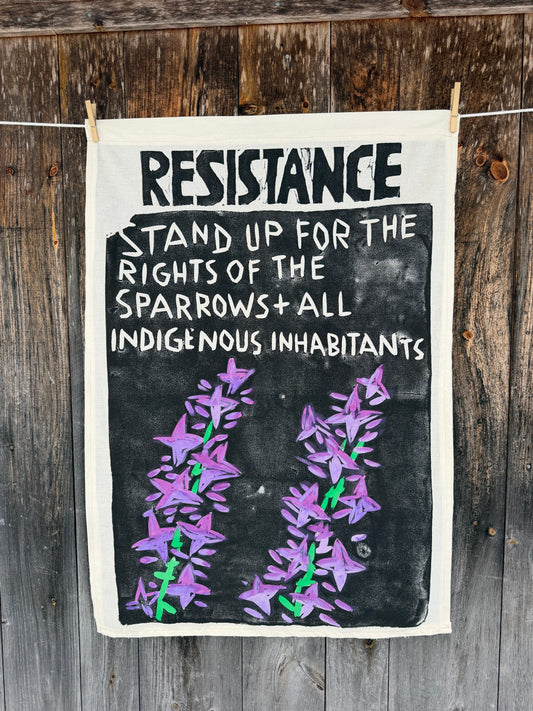 RESISTANCE
STAND UP FOR THE
RIGHTS OF THE
SPARROWS + ALL
INDIGENOUS INHABITANTS